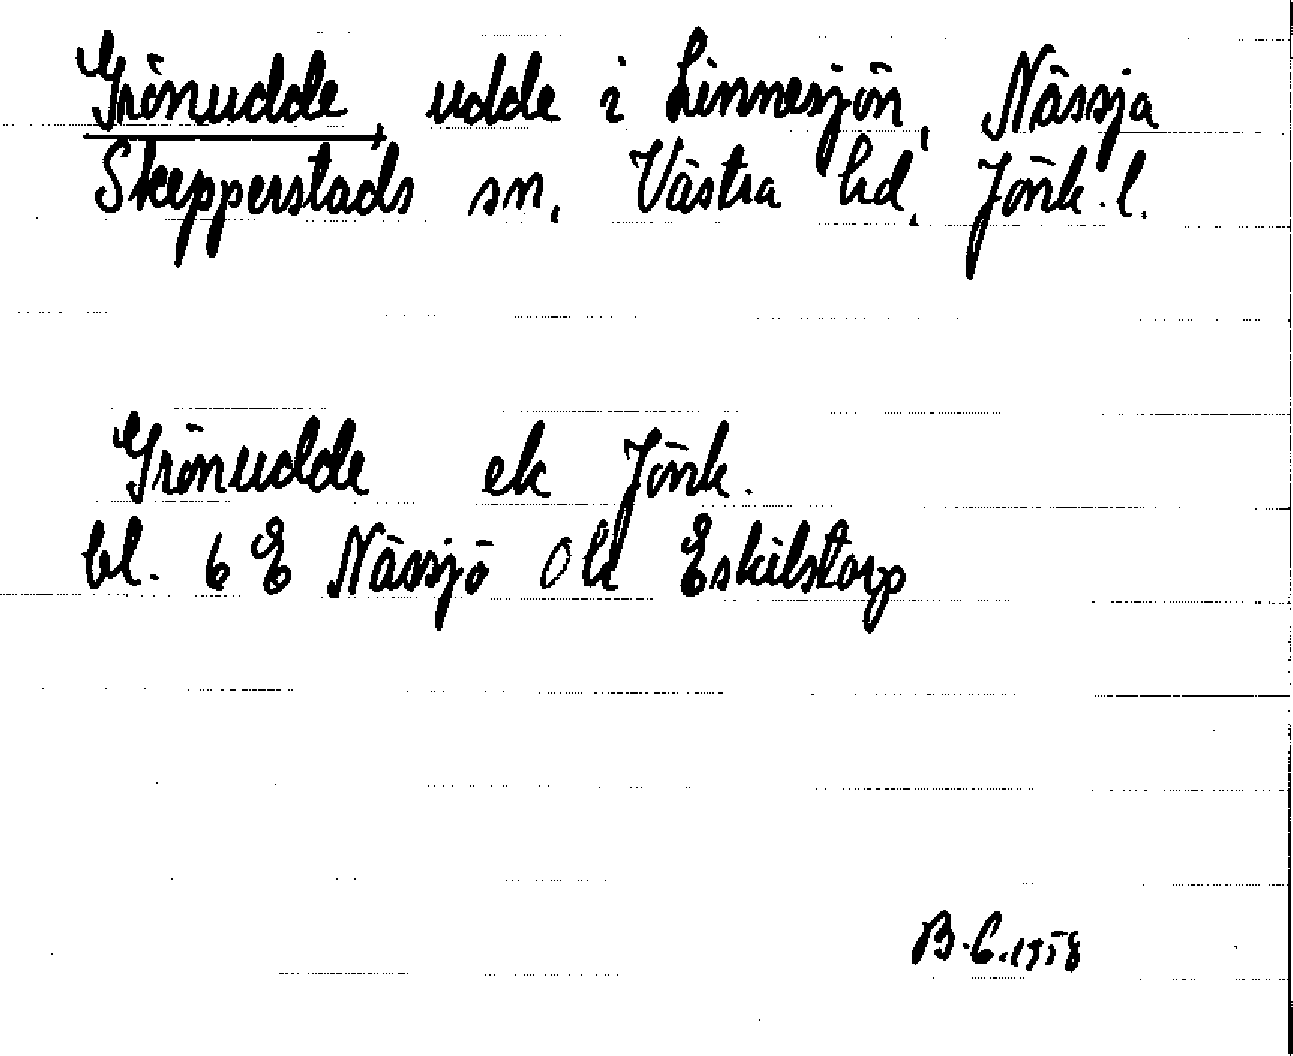 Grönudde, udde i Linnesjön, Nässja
Skepperstads sn, Västra hd, Jönk. l.
Grönudde ek Jönk.
bl. 6 E Nässjö 0 ld Eskilstorp
B. C. 1958